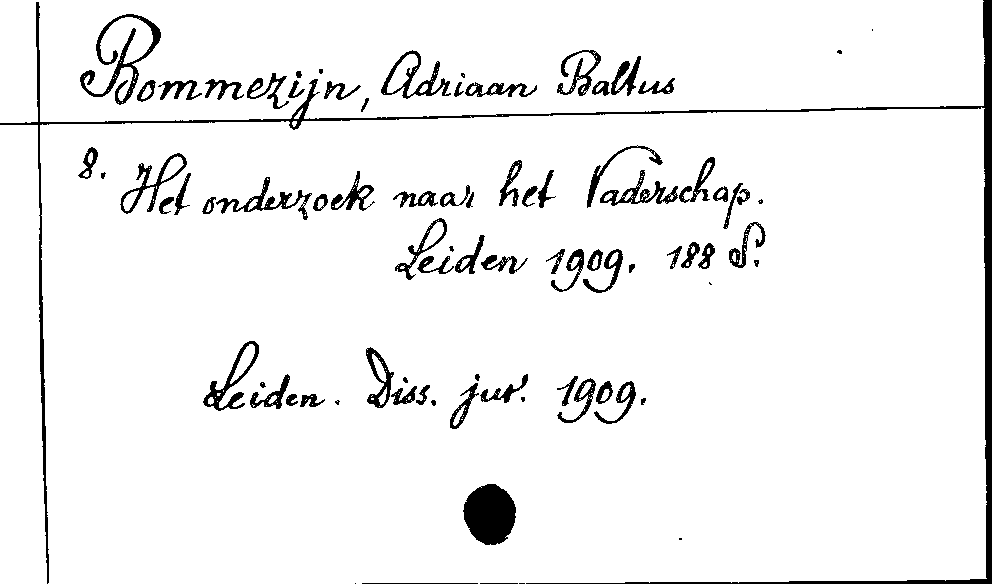 Bommezijn, Adriaan Baltus
8. Het onderzoek naar het Vaderschap.
Leiden 1909. 188 S.
Leiden. Diss. jur. 1909.